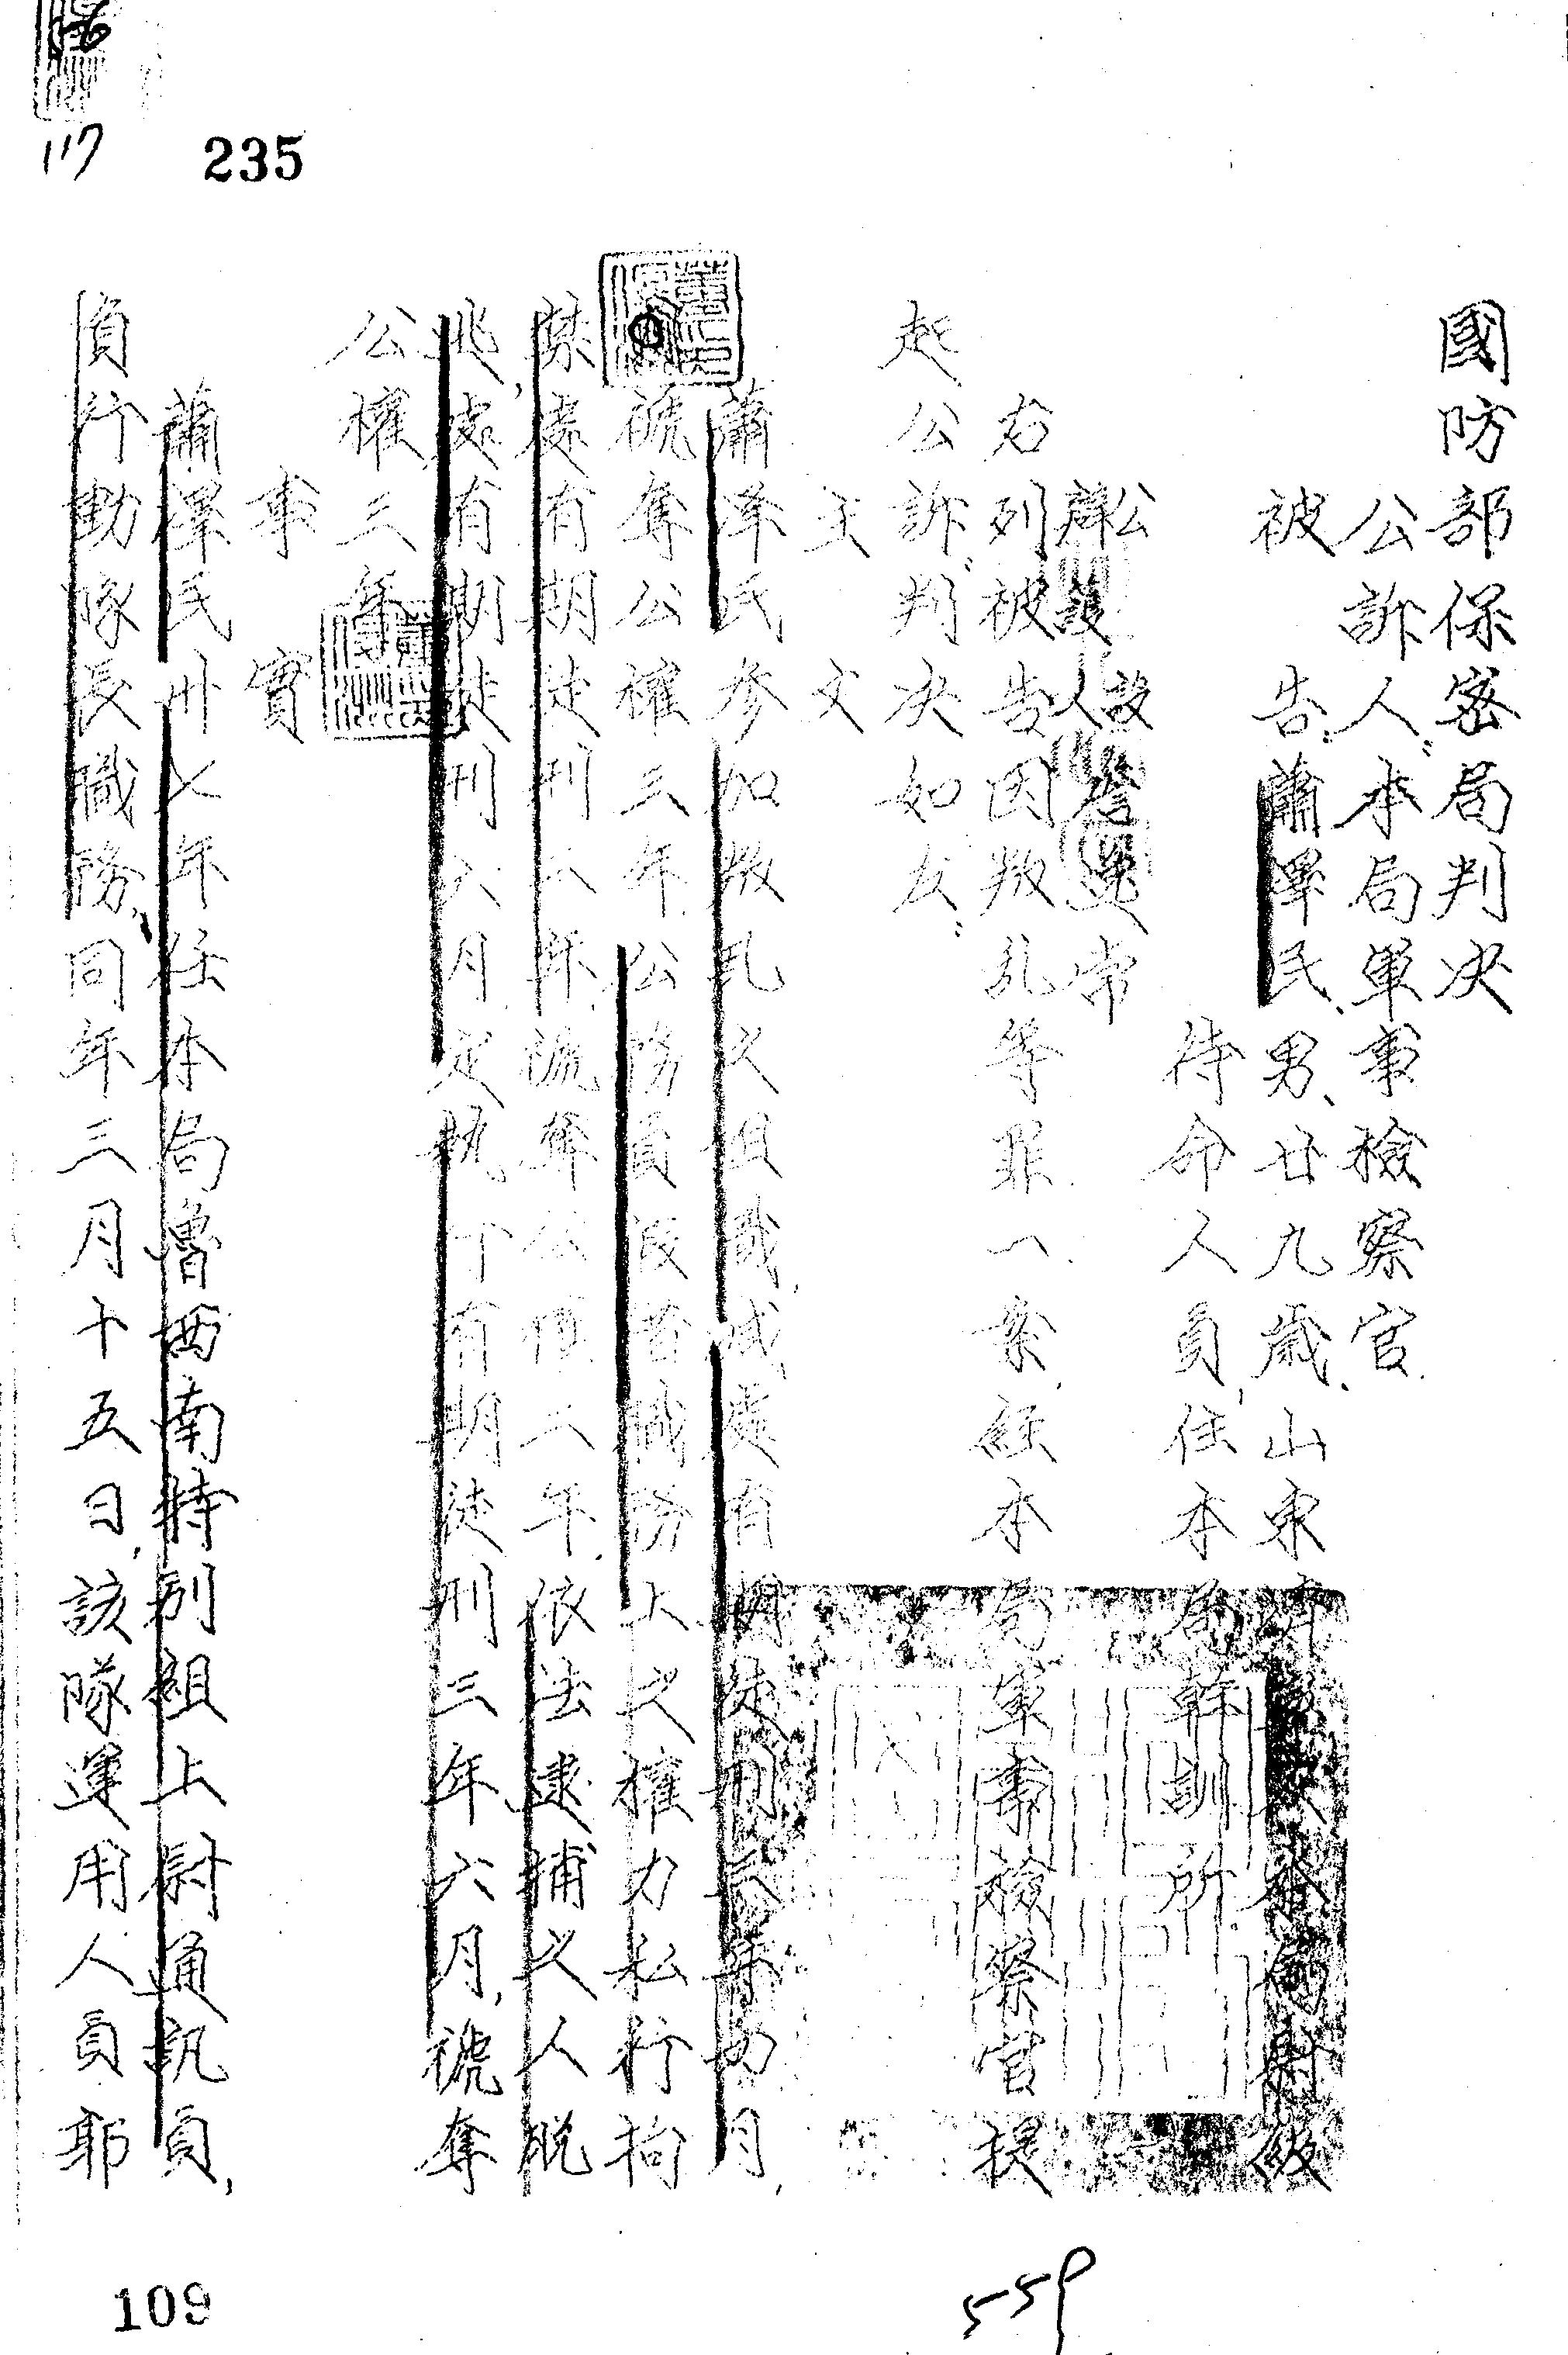 117
235
國防部保密局判決
公訴人本局軍事檢察官
被告蕭澤民、男、廿九歲、山東
待命人員住本局幹訓所
公設
辯護人
右列被告因叛乱等罪一案經本局軍事檢察官提
起公訴判決如左
主文
蕭澤民參加叛乱之組織減處有期徒刑
褫奪公權三年公務員假借職務上之權力私行拘
禁處有期徒刑二年褫奪公權二年依法逮捕之人脫
逃處有期徒刑六月定執行有期徒刑三年六月,褫奪
公權三年
事實
蕭澤民卅七年任本局魯西南特別組上尉通訊員,
負行動隊長職務,同年三月十五日,該隊運用人員郭
109
559